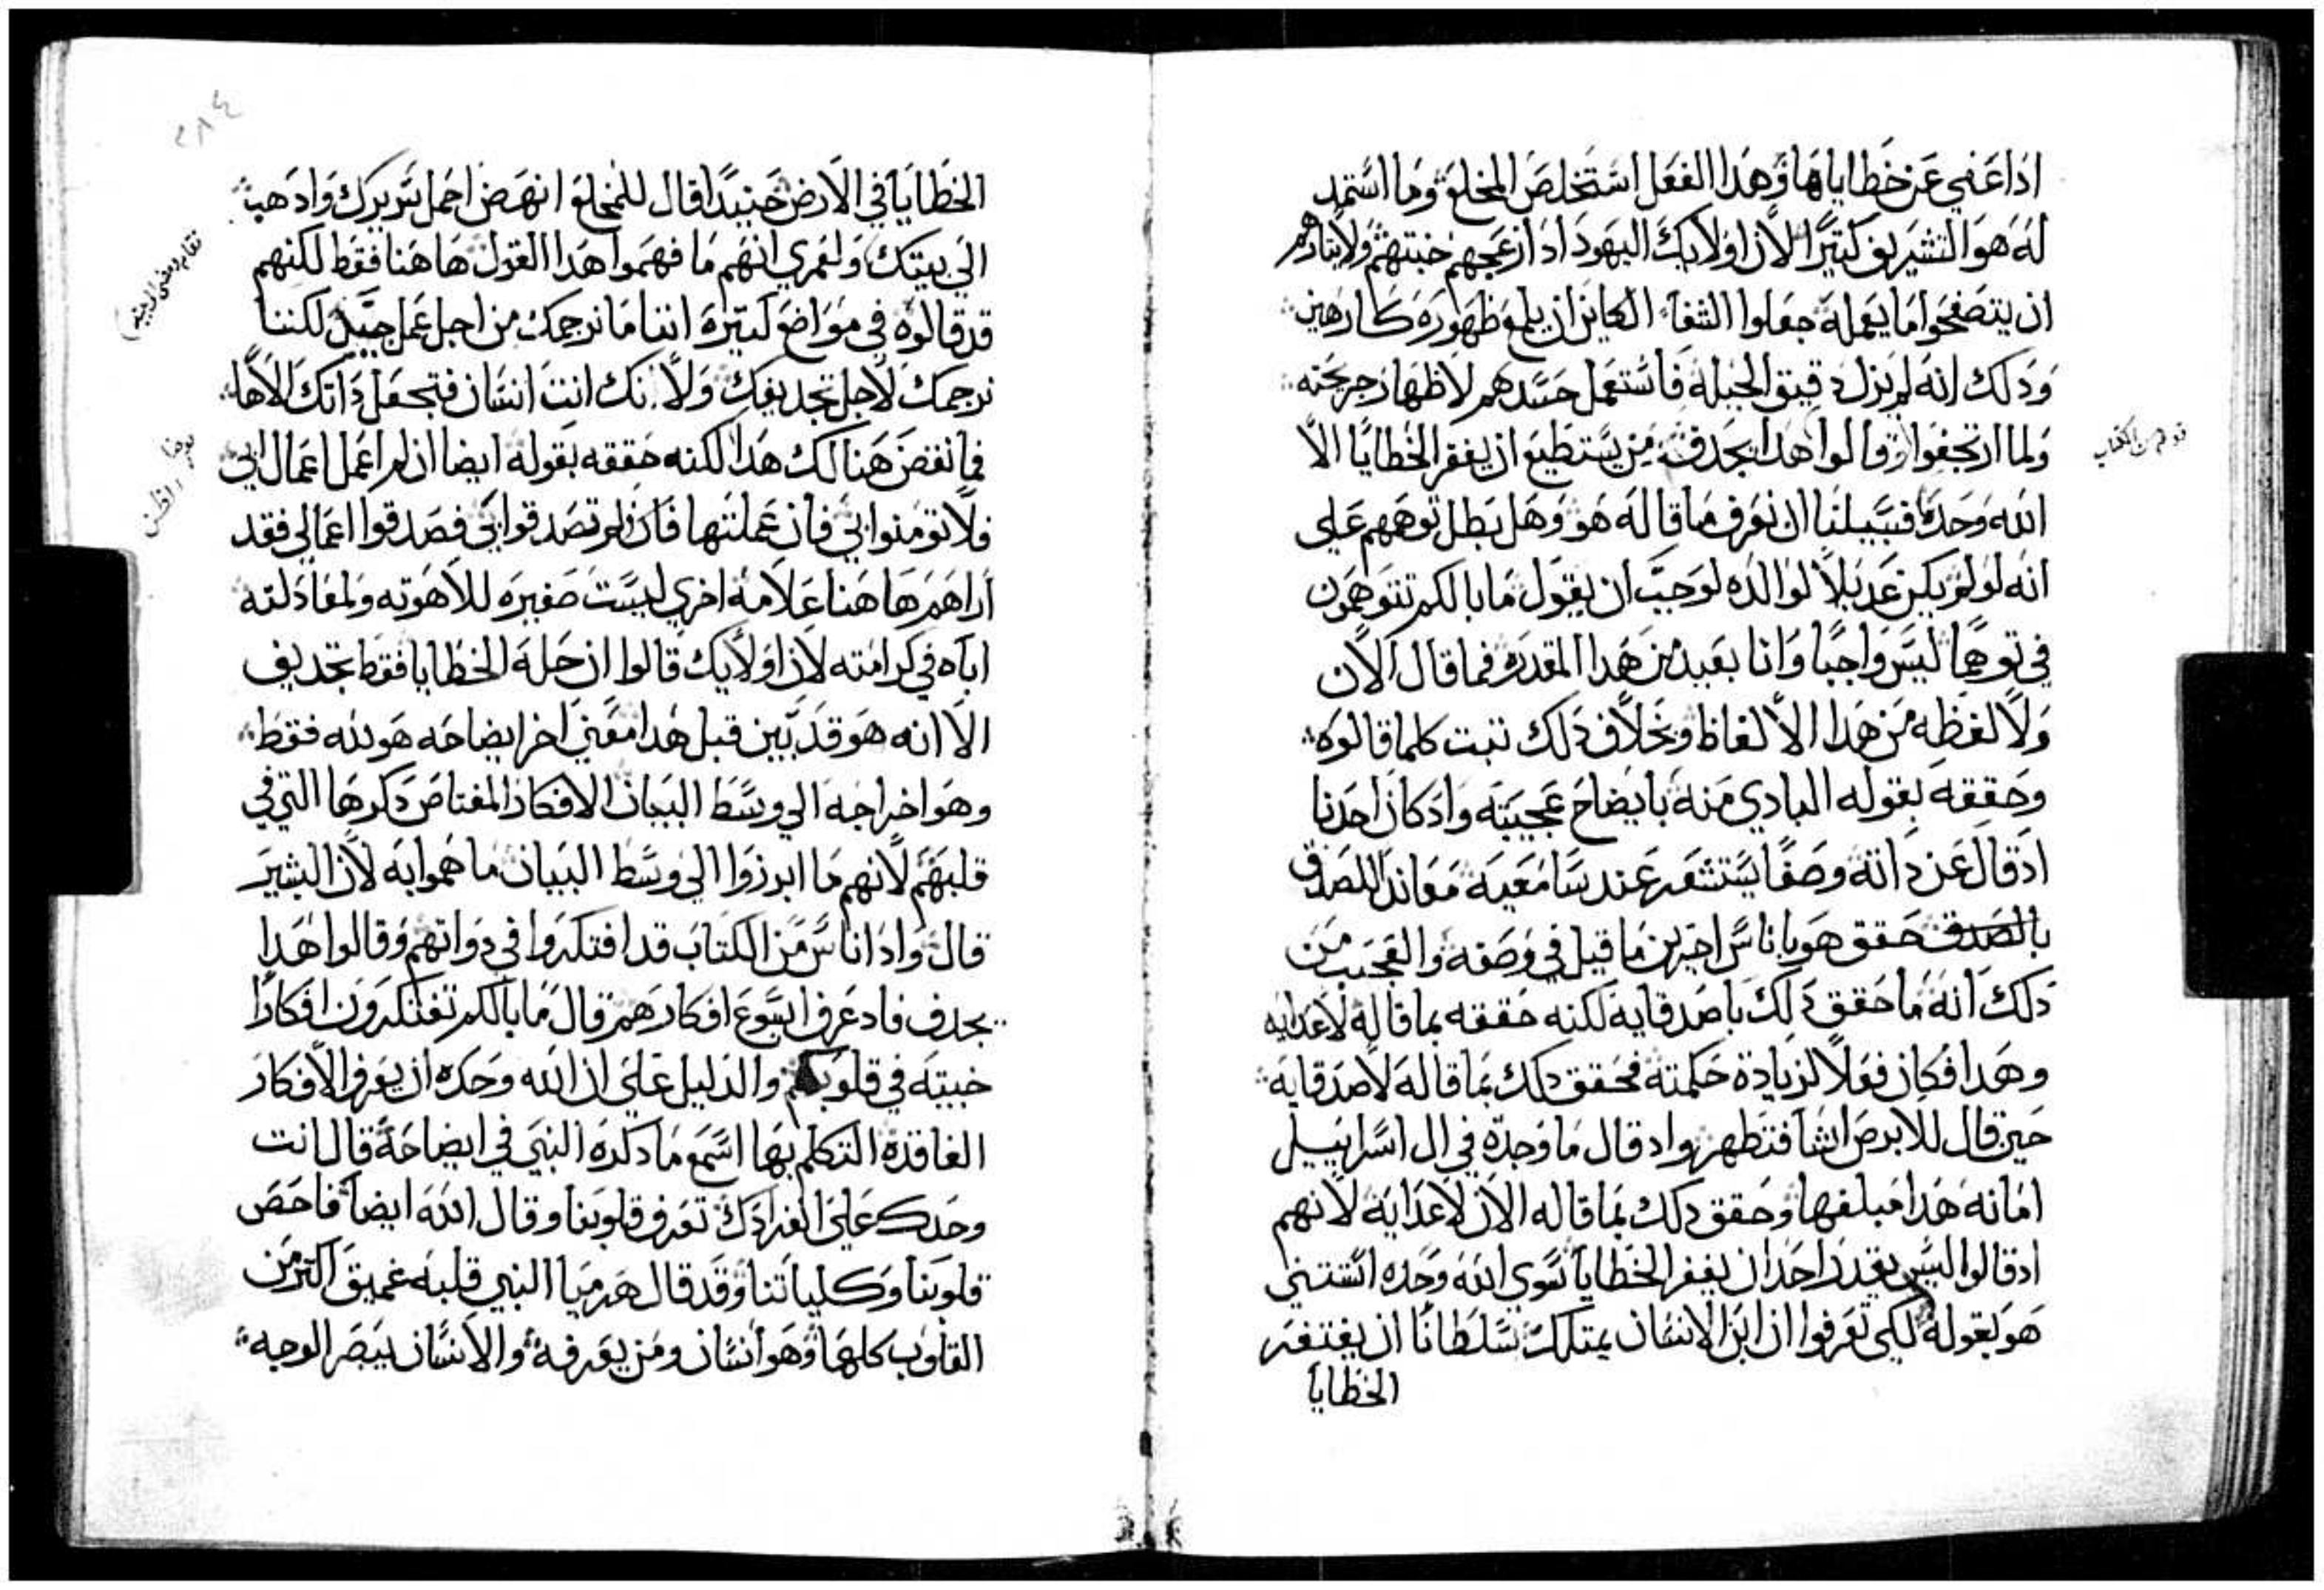 اذا عفي عن خطاياها وهذا الفعل استخلص المخلع وما استمد
له هو التشريف كتيرًا لان اولايك اليهود اذ ازعجهم خبتهم ولايتادهم
ان يتصفحوا ما يعمله جعلوا الشفاء الكاين ان يلمع ظهوره كارهين
وذلك انه لم يزل دقيق الحيله فاستعمل حسدهم لاظهار جريحته
ولما ارتجفوا وقالوا هذا يجدف من يستطيع ان يغفر الخطايا الا
الله وحده فسبيلنا ان نعرف ما قاله هو وهل بطل توهمهم علي
انه لو لم يكن عديلاً لوالده لوجب ان يقول ما بالكم تتوهمون
في توهمًا ليس واجبًا وانا بعيد من هذا المقدره فما قال الان
ولا لفظه من هذا الالفاظ وبخلاف ذلك تبت كلما قالوه
وحققه بقوله البادي منه بايضاح عجيبته واد كان احدنا
اذ قال عن داته وصفًا يستشعر عند سامعيه معاندا للصدق
بالصدق حقق هو باناس اخرين ما قيل في وصفه والعجيب من
ذلك انه ما حقق ذلك باصدقايه لكنه حققه بما قاله لاعدايه
وهدا فكان فعلاً لزيادة حكمته فحقق دلك بما قاله لاصدقايه
حين قال للابرص انشا فتطهر واد قال ما وجدة في ال اسراييل
امانه هدا مبلغها وحقق دلك بما قاله الان لاعدايه لانهم
اد قالوا ليس يقدر احد ان يغفر الخطايا سوي الله وحده استتني
هو بقوله لكي تعرفوا ان ابن الانسان يمتلك سلطانًا ان يغتفر
الخطايا
الخطايا في الارض حنيئدًا قال للمخلع انهض احمل سريرك وادهب
الي بيتك ولعمري انهم ما فهموا هدا القول هاهنا فقط لكنهم
قد قالوه في مواضع كتيره اننا ما نرجمك من اجل عمل جيد لكننا
نرجمك لاجل تجديفك ولانك انت انسان فتجعل داتك الاهًا
فما نقض هنالك هدا لكنه حققه بقوله ايضا ان لم اعمل اعمال ابي
فلا تومنوا بي فان عملتها فان لم تصدقوا بي فصدقوا اعمالي فقد
اراهم هاهنا علامه اخري ليست صغيره للاهوته ولمعادلته
اباه في كرامته لان اولايك قالوا ان حله الخطايا فقط تجديف
الا انه هو قد بين قبل هدا معني اخر ايضاحه هو لله فقط
وهو اخراجه الي وسط البيان الافكار المغتاص دكرها التي في
قلبهم لانهم ما ابرزوا الي وسط البيان ما هموا به لان البشير
قال وادا ناس من الكتاب قد افتكروا في دواتهم وقالوا هدا
يجدف فاد عرف يسوع افكارهم قال ما بالكم تفتكرون افكارًا
خبيته في قلوبكم والدليل علي ان الله وحده ان يعرف الافكار
الفاقدة التكلم بها اسمع ما دكره النبي في ايضاحه قال انت
وحدك علي انفرادك تعرف قلوبنا وقال الله ايضا فاحص
قلوبنا وكلياتنا وقد قال هرميا النبي قلبه عميق اكتر من
القلوب كلها وهو انسان ومن يعرفه والانسان يبصر الوجه